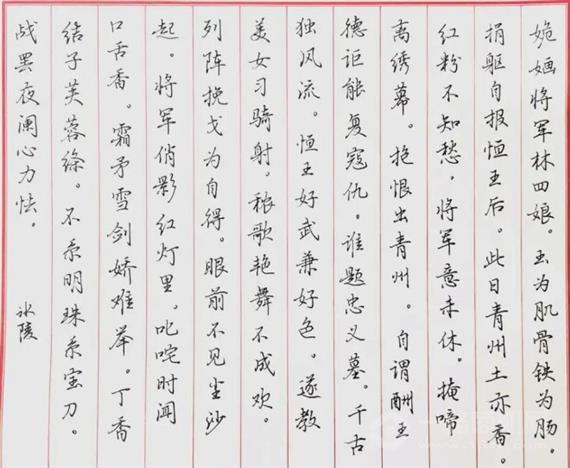 姽婳将军林四娘。玉为肌骨铁为肠。
捐躯自报恒王后。此日青州土亦香。
红粉不知愁，将军意未休。掩啼
离绣幕。抱恨出青州。自谓酬王
德讵能复寇仇。谁题忠义墓。千古
独风流。恒王好武兼好色。遂教
美女习骑射。秾歌艳舞不成欢。
列阵挽戈为自得。眼前不见尘沙
起。将军俏影红灯里。叱咤时闻
口舌香。霜矛雪剑娇难举。丁香
结子芙蓉绦。不系明珠系宝刀。
战罢夜阑心力怯。
冰陵